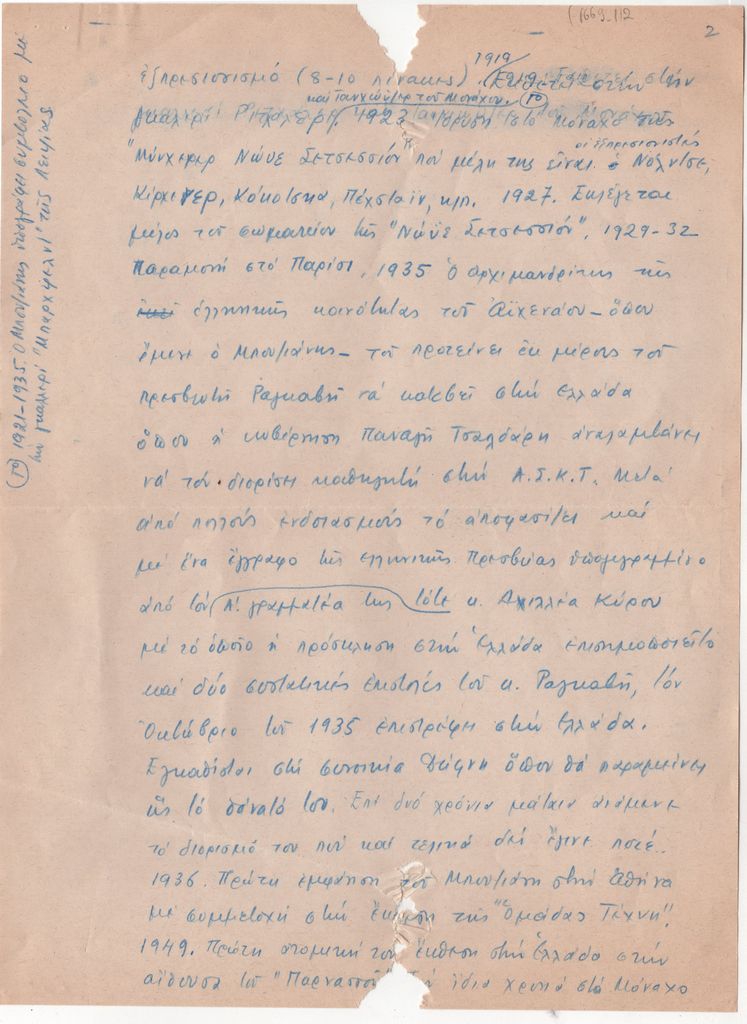 (1669_112
2
1919
ἐξπρεσιονισμό (8-10 πίνακες). Ἐκθέτει στήν
καί Τανχώυζερ τοῦ Μονάχου. (το)
Γκαλερί 1922 ἵδρυση στό Μόναχο τῆς
οἱ ἐξπρεσιονιστές
"Μύνχενερ Νώυε Σετσεσσιόν" πού μέλη της εἶναι ὁ Νόλντε,
Κίρχενερ, Κοκόσκα, Πέχσταϊν, κλπ. 1927. Ἐκλέγεται
μέλος τοῦ σωματείου τῆς "Νώυε Σετσεσσιόν", 1929-32
παραμονή στό Παρίσι, 1935 ὁ ἀρχιμανδρίτης τῆς
ἑλληνικῆς κοινότητας τοῦ Ἀϊχενάου – ὅπου
ἔμενε ὁ Μπουζιάνης – τοῦ προτείνει ἐκ μέρους τοῦ
πρεσβευτῆ Ραγκαβῆ νά κατεβεῖ στήν Ἑλλάδα
ὅπου ἡ κυβέρνηση Παναγῆ Τσαλδάρη ἀναλαμβάνει
νά τόν διορίσει καθηγητή στήν Α.Σ.Κ.Τ. Μετά
ἀπό πολλούς ἐνδοιασμούς τό ἀποφασίζει καί
μέ ἕνα ἔγγραφο τῆς ἑλληνικῆς Πρεσβείας ὑπογεγραμμένο
ἀπό τόν Α'. γραμματέα της τότε κ. Ἀχιλλέα Κύρου
μέ τό ὁποῖο ἡ πρόσκληση στήν Ἑλλάδα ἐπισημοποιεῖτο
καί δύο συστατικές ἐπιστολές τοῦ κ. Ραγκαβῆ, τόν
Ὀκτώβριο τοῦ 1935 ἐπιστρέφει στήν Ἑλλάδα.
Ἐγκαθίσταται στή συνοικία Δάφνη ὅπου θά παραμείνει
ὥς τό θάνατό του. Ἐπί δυό χρόνια μάταια ἀνάμενε
τό διορισμό του πού καί τελικά δέν ἔγινε ποτέ..
1936. Πρώτη ἐμφάνιση τοῦ Μπουζιάνη στήν Ἀθήνα
μέ συμμετοχή στήν ἔκθεση τῆς "Ὁμάδας Τέχνη".
1949. Πρώτη ἀτομική του ἔκθεση στήν Ἑλλάδα στήν
αἴθουσα τοῦ "Παρνασσοῦ" τήν ἴδια χρονιά στό Μόναχο
(το) 1921-1935. Ὁ Μπουζιάνης ὑπογράφει συμβόλαιο μέ
τήν γκαλερί "Μπαρχφελντ" τῆς Λειψίας